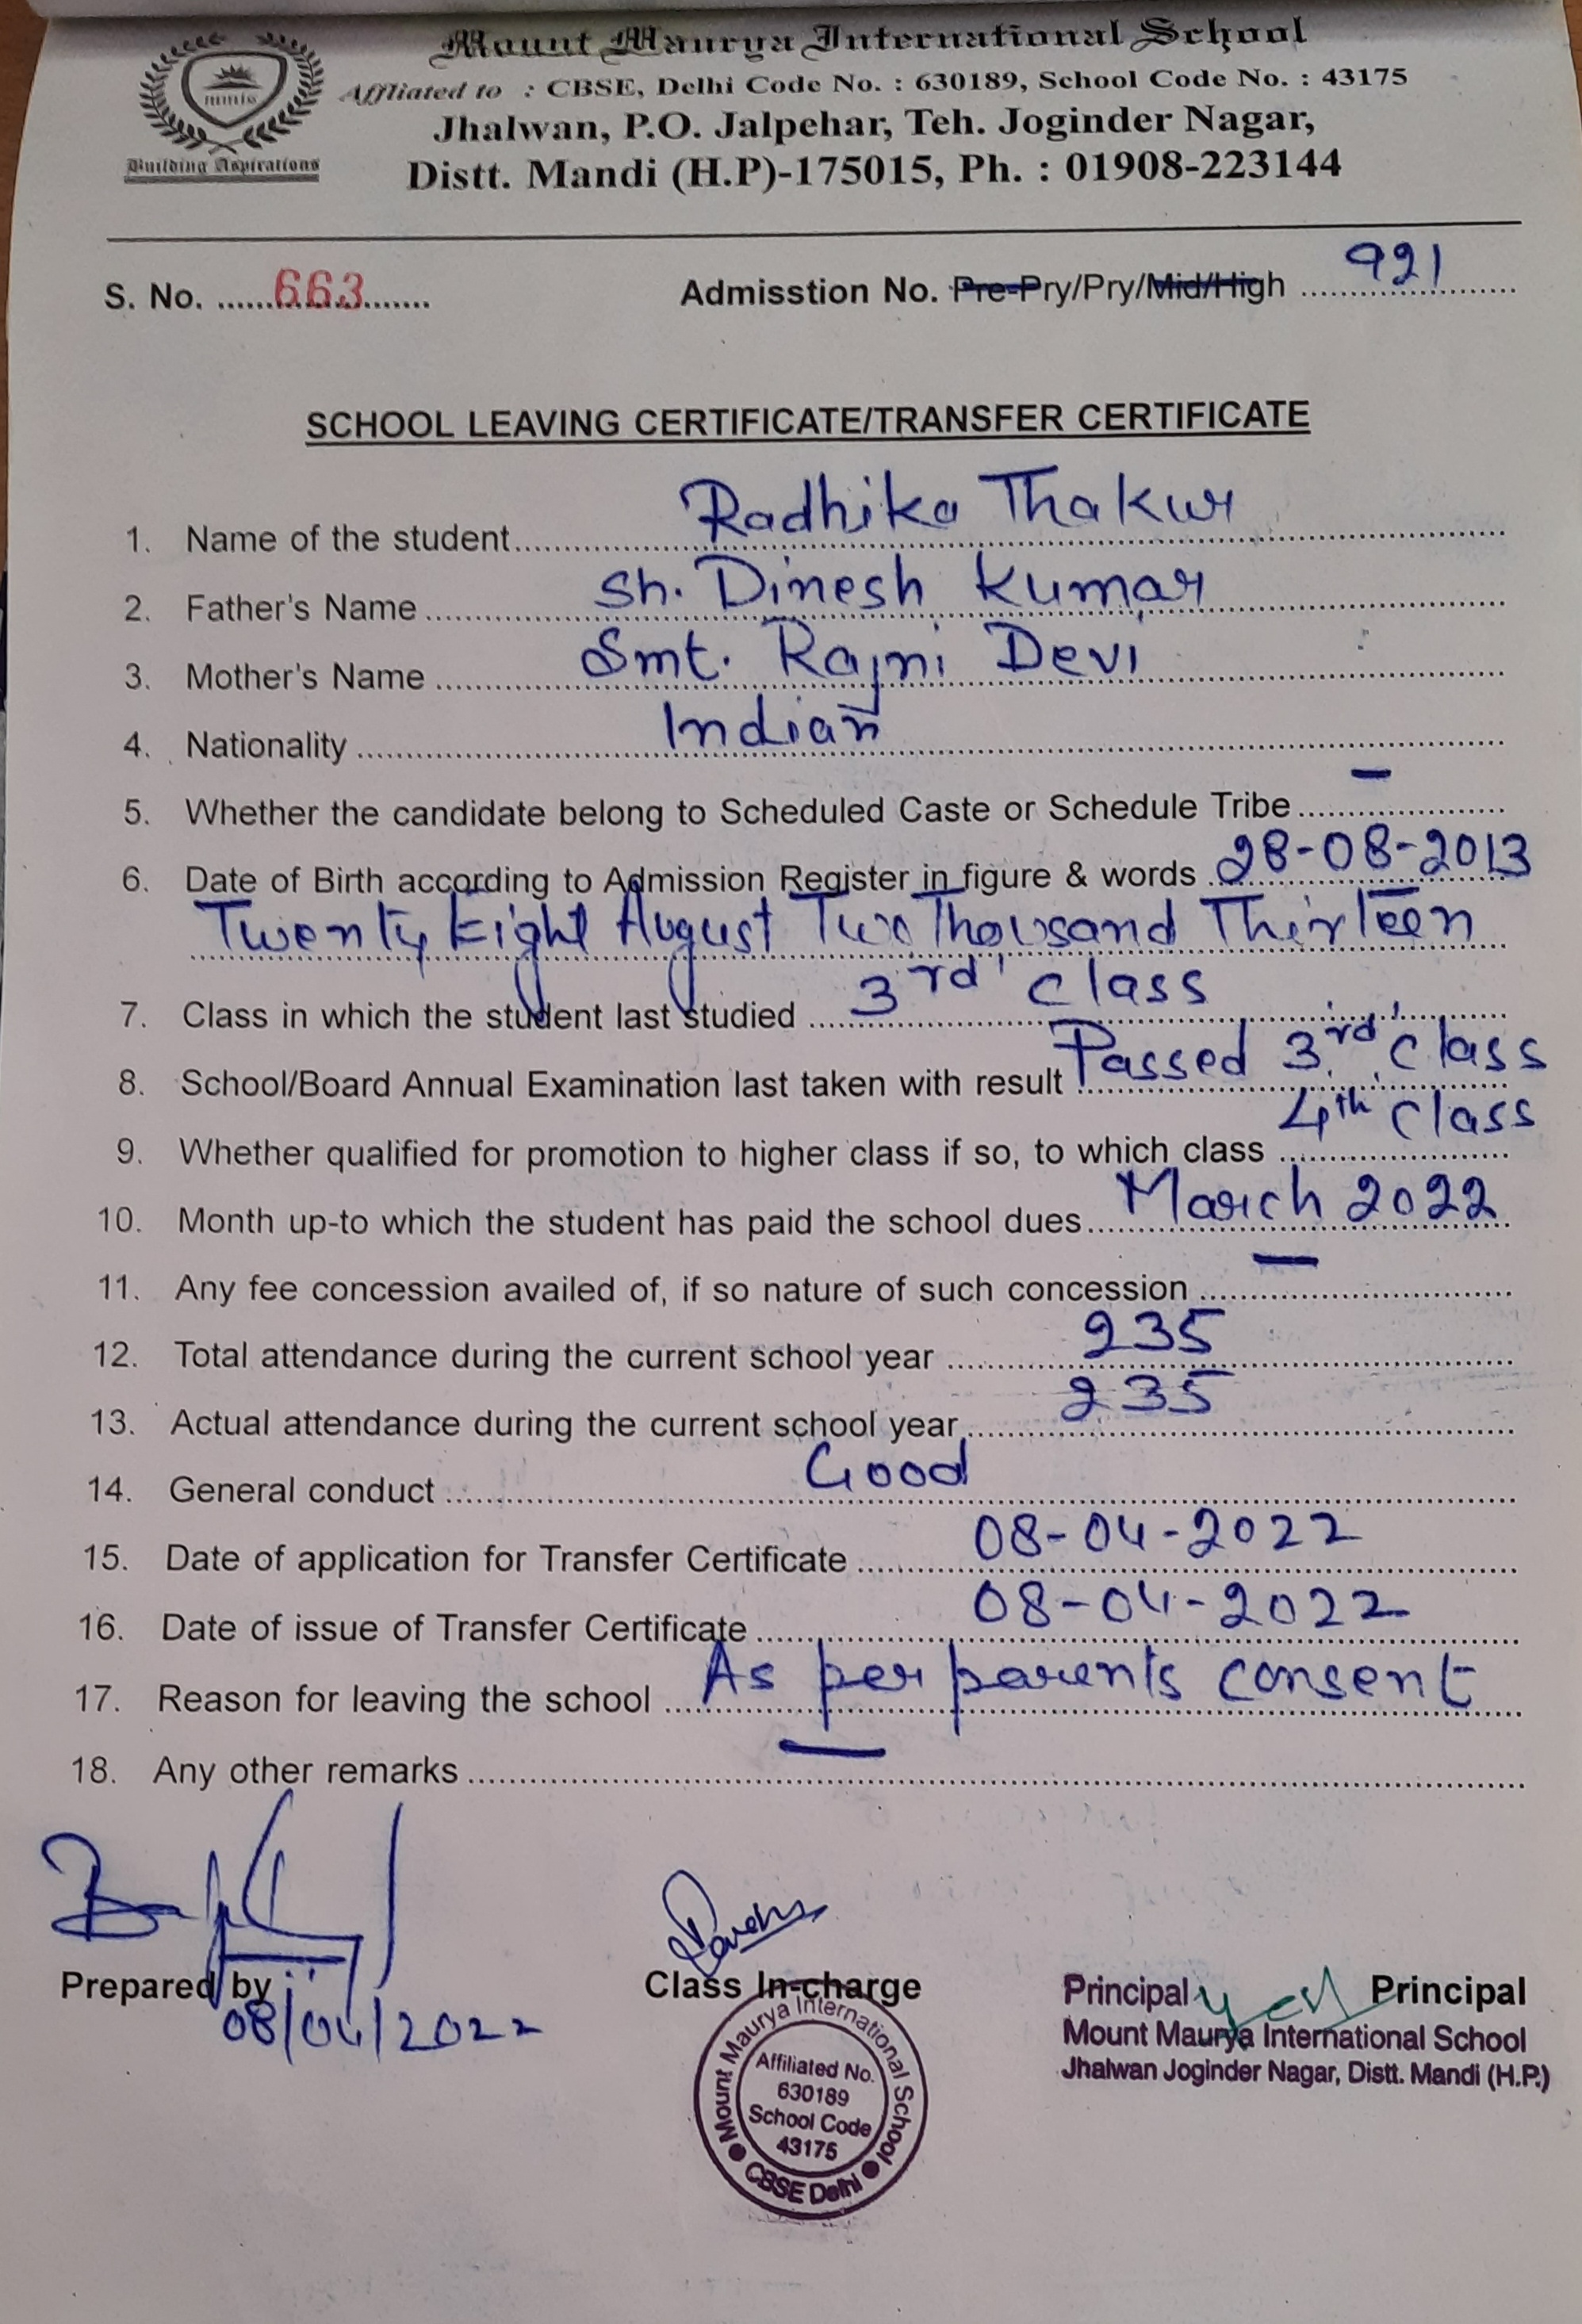 mmis
Building Aspirations
Mount Maurya International School
Affliated to : CBSE, Delhi Code No. : 630189, School Code No. : 43175
Jhalwan, P.O. Jalpehar, Teh. Joginder Nagar,
Distt. Mandi (H.P)-175015, Ph. : 01908-223144
S. No. ...... 663 ...... Admisstion No. Pre-Pry/Pry/Mid/High ...... 921
SCHOOL LEAVING CERTIFICATE/TRANSFER CERTIFICATE
1. Name of the student...... Radhika Thakur
2. Father's Name ...... Sh. Dinesh Kumar
3. Mother's Name ...... Smt. Rajni Devi
4. Nationality ...... Indian
5. Whether the candidate belong to Scheduled Caste or Schedule Tribe ...... –
6. Date of Birth according to Admission Register in figure & words ...... 28-08-2013
Twenty Eight August Two Thousand Thirteen
7. Class in which the student last studied ...... 3rd class
8. School/Board Annual Examination last taken with result ...... Passed 3rd class
9. Whether qualified for promotion to higher class if so, to which class ...... 4th class
10. Month up-to which the student has paid the school dues ...... March 2022
11. Any fee concession availed of, if so nature of such concession ...... –
12. Total attendance during the current school year ...... 235
13. Actual attendance during the current school year ...... 235
14. General conduct ...... Good
15. Date of application for Transfer Certificate ...... 08-04-2022
16. Date of issue of Transfer Certificate ...... 08-04-2022
17. Reason for leaving the school ...... As per parents consent
18. Any other remarks ...... –
Prepared by Class In-charge Principal
08/04/2022
Principal
Mount Maurya International School
Jhalwan Joginder Nagar, Distt. Mandi (H.P.)
Mount Maurya International School
Affiliated No.
630189
School Code
43175
CBSE Delhi